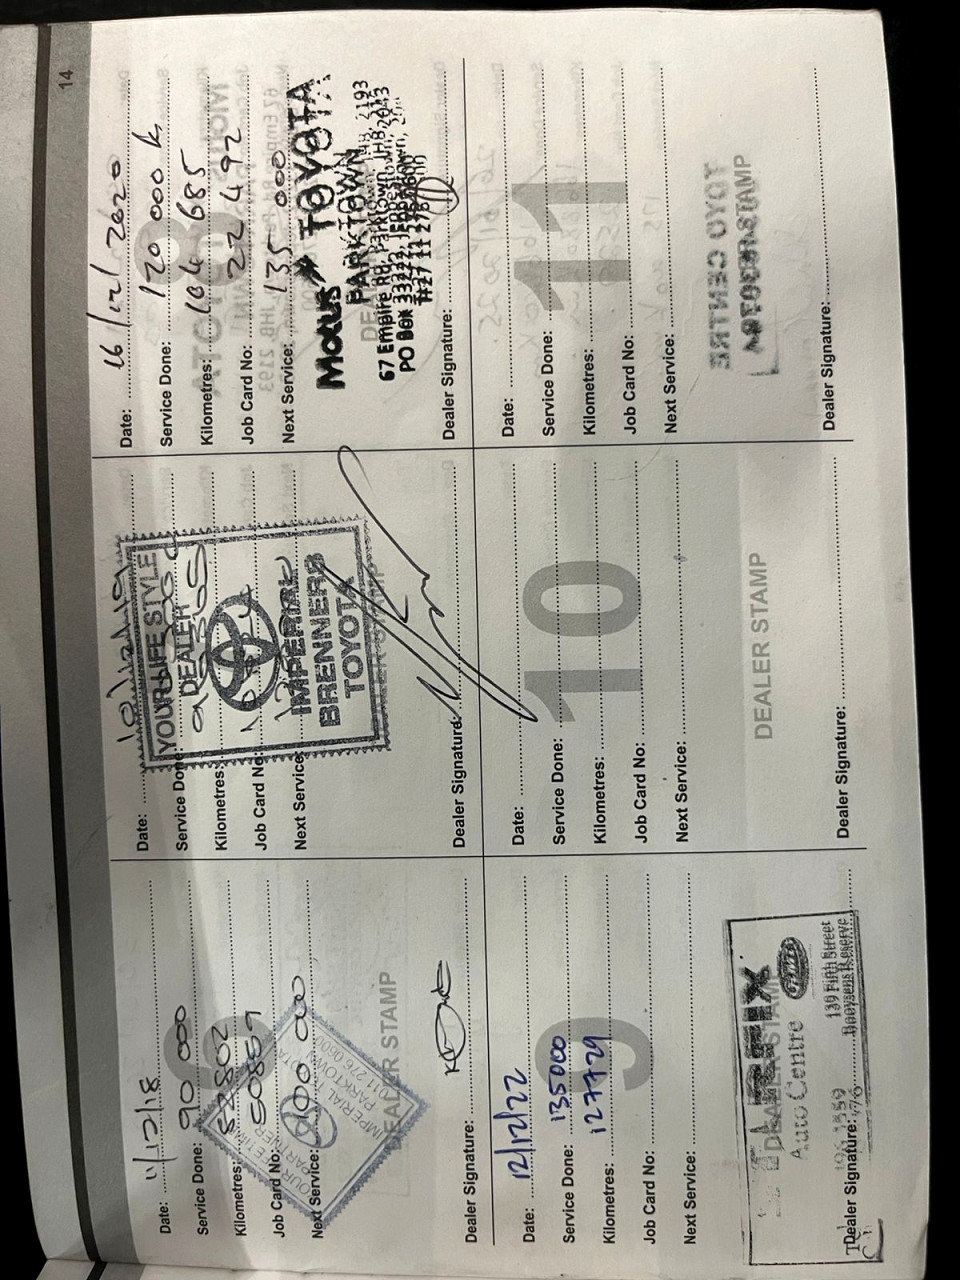 14
Date: 11/12/18
Service Done: 90 000
Kilometres: 82802
Job Card No: 50869
Next Service: 100 000
YOUR LIFETIME
PARTNER
IMPERIAL TOYOTA
PARKTOWN
011 276 0600
DEALER STAMP
Dealer Signature:
Date:
Service Done:
Kilometres:
Job Card No:
Next Service:
YOUR LIFE STYLE
DEALER
IMPERIAL
BRENNERS
TOYOTA
Dealer Signature:
Date: 16/12/2020
Service Done: 120 000 k
Kilometres: 104685
Job Card No: 22492
Next Service: 135 000
Motus TOYOTA
PARKTOWN
67 Empire Rd, Parktown, JHB, 2193
PO Box 33222, Jeppestown, 2043
Dealer Signature:
9
Date: 12/12/22
Service Done: 135000
Kilometres: 127729
Job Card No:
Next Service:
DEALER STAMP
Auto Centre
139 Fifth Street
Booysens Reserve
Dealer Signature:
10
Date:
Service Done:
Kilometres:
Job Card No:
Next Service:
DEALER STAMP
Dealer Signature:
11
Date:
Service Done:
Kilometres:
Job Card No:
Next Service:
Dealer Signature: